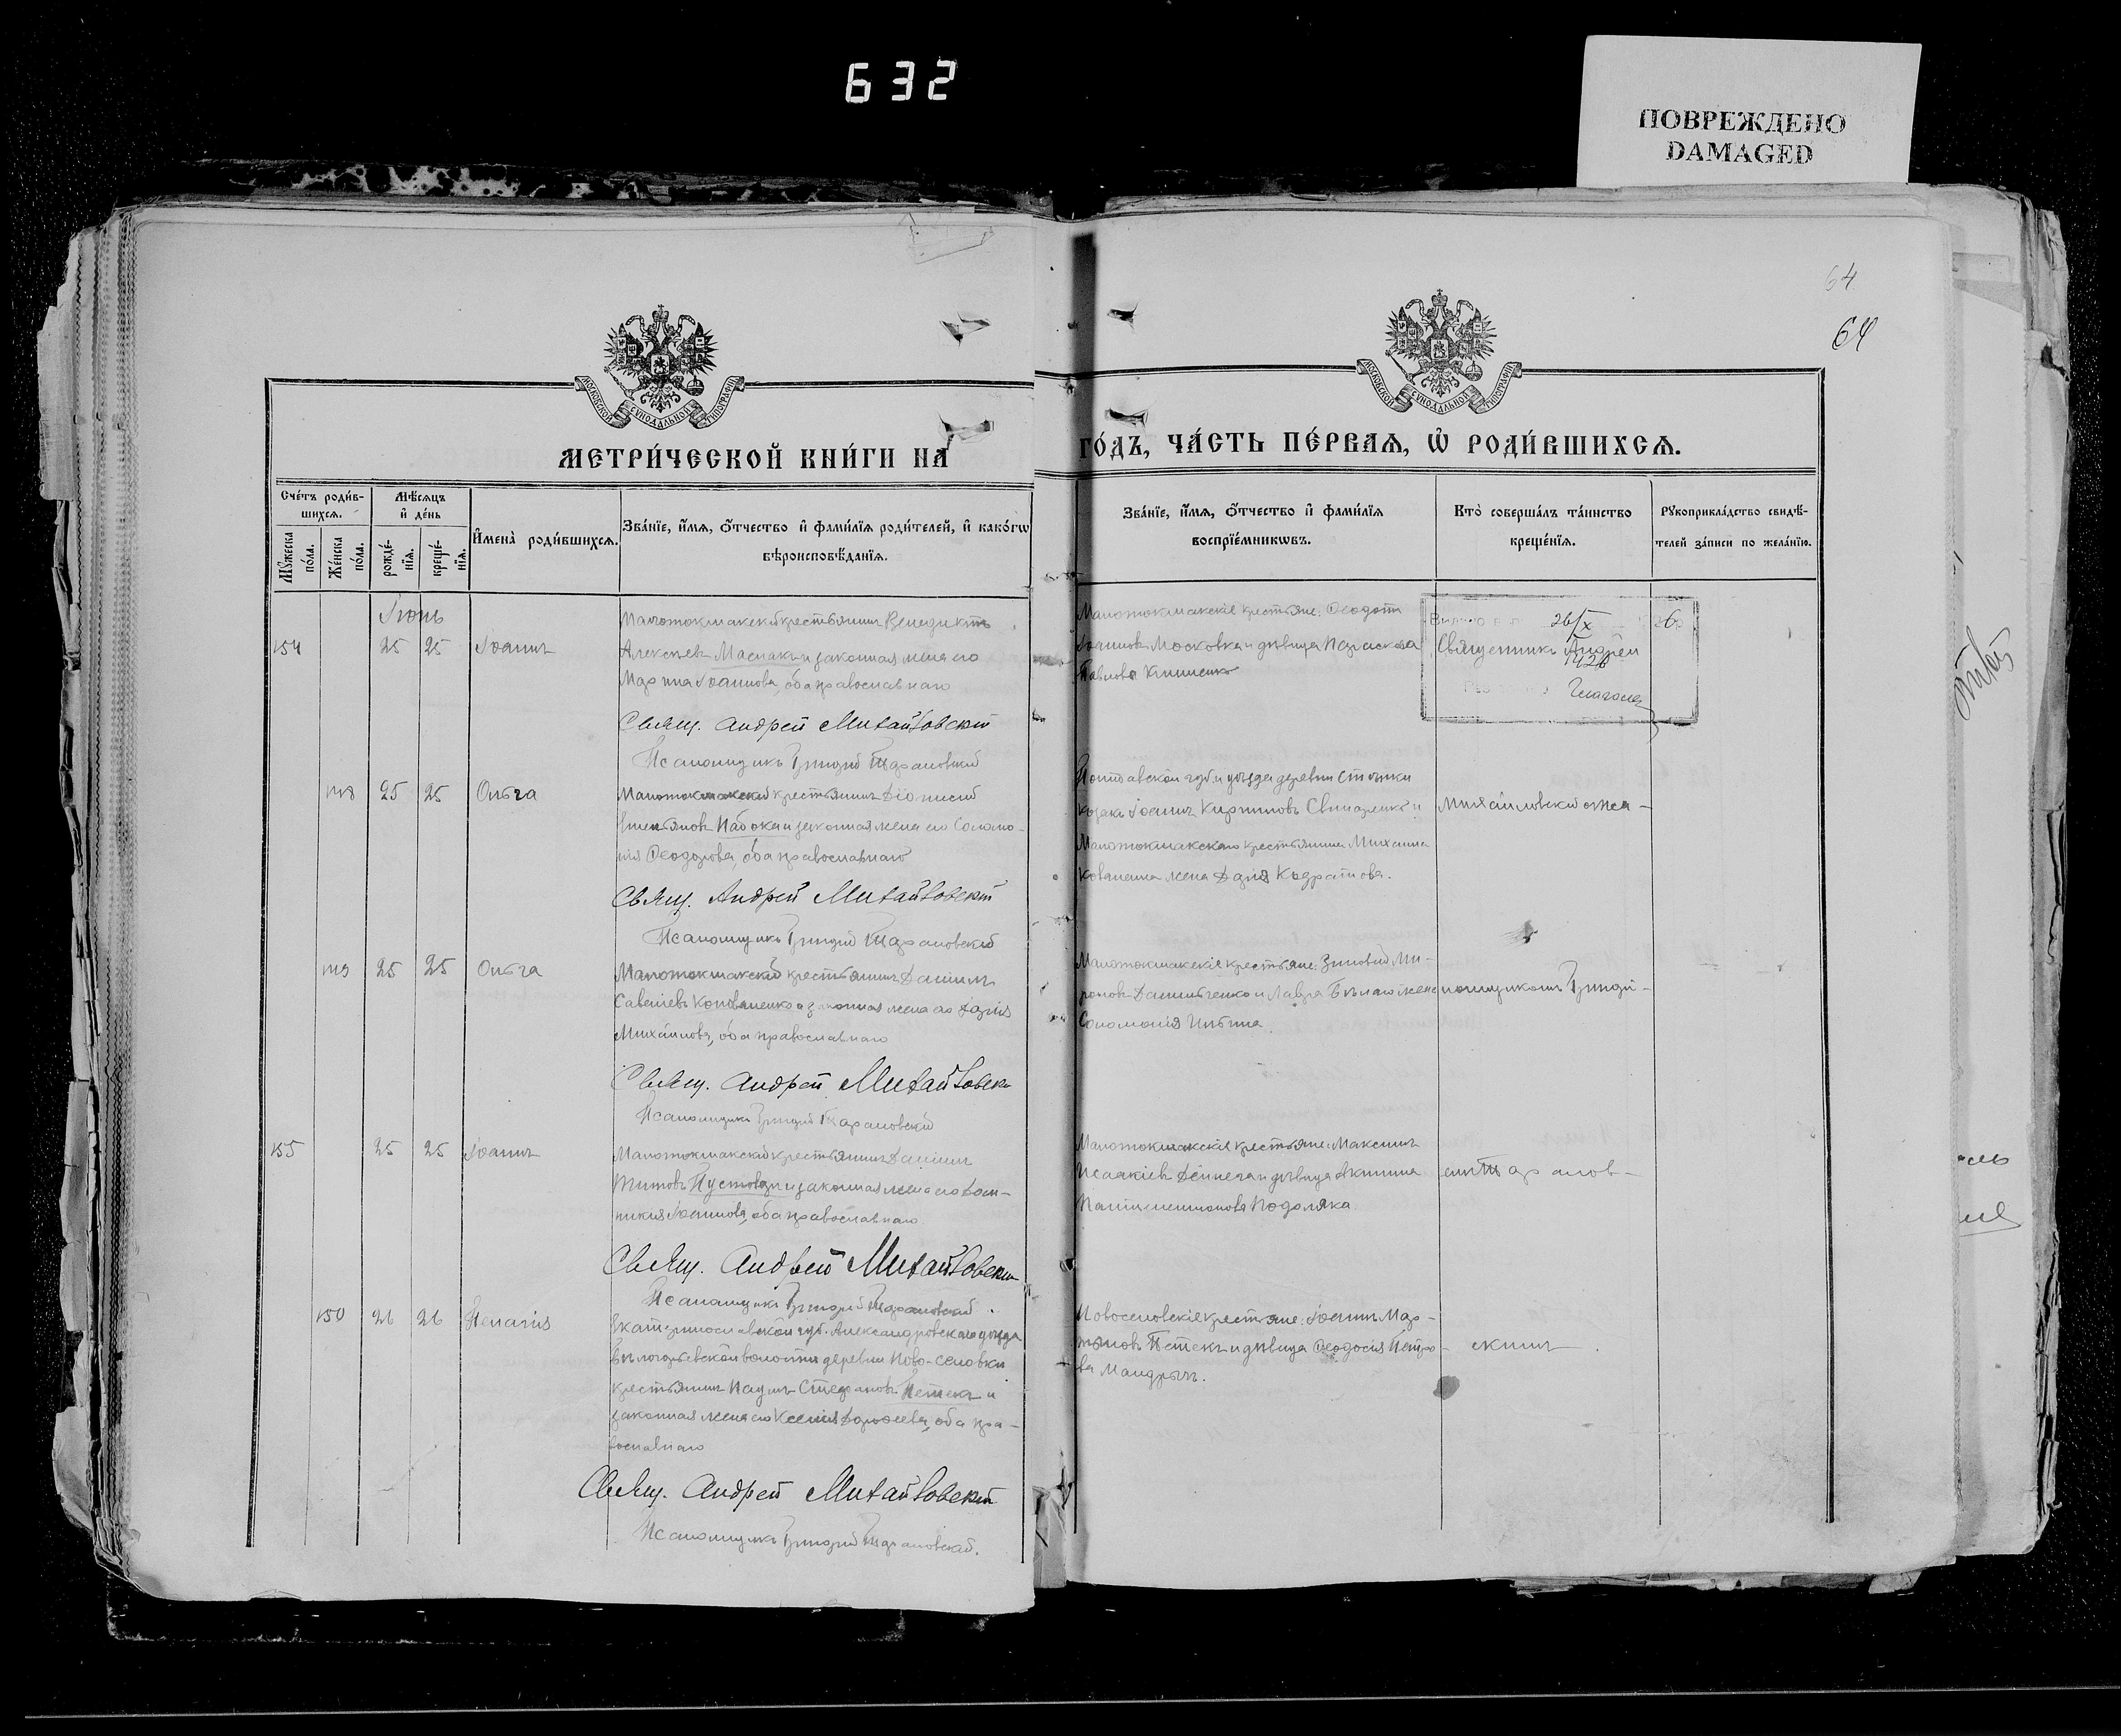 632
ПОВРЕЖДЕНО
DAMAGED
64
64
МОСКОВСКОЙ СУНОДАЛЬНОЙ ТИПОГРАФІИ
МОСКОВСКОЙ СУНОДАЛЬНОЙ ТИПОГРАФІИ
МЕТРИ́ЧЕСКОЙ КНИ́ГИ НА
ГО́ДЪ, ЧА́СТЬ ПЕ́РВАѦ, Ѡ РОДИ́ВШИХСѦ.
Сче́тъ роди́в-
шихсѧ.
Мѣ́сѧцъ
и҆ де́нь
Мꙋ́жеска по́ла.
Же́нска по́ла.
рожде́-
нїѧ.
креще́-
нїѧ.
И҆мена̀ роди́вшихсѧ.
Зва́нїе, и҆́мѧ, о҆́тчество и҆ фами́лїѧ роди́телей, и҆ како́гѡ
вѣроисповѣ́данїѧ.
Зва́нїе, и҆́мѧ, о҆́тчество и҆ фами́лїѧ
воспрїе́мникѡвъ.
Кто̀ соверша́лъ та́инство
креще́нїѧ.
Рꙋкоприкла́дство свидѣ́-
телей за́писи по жела́нїю.
Іюнь
154 25 25 Іоаннъ
Малотокмакскій крестьянинъ Венедиктъ
Алексѣевъ Маснакъ и законная жена его
Марина Іоаннова, оба православнаго
Свящ. Андрей Михайловскій
Псаломщикъ Григорій Тарановскій
Малотокмакскіе крестьяне: Ѳеодотъ
Іоанновъ Московка и дѣвица Параскева
Павлова
26/X 6
Священникъ Андрей
1426
148 25 25 Ольга
Малотокмакскій крестьянинъ Діонисій
Набока и законная жена его Соломо-
нія Ѳеодорова, оба православнаго
Свящ. Андрей Михайловскій
Псаломщикъ Григорій Тарановскій
Полтавской губ. и уѣзда деревни
козакъ Іоаннъ Кирилловъ и
Малотокмакскаго крестьянина Михаила
жена Дарія Кодратова.
Михайловскій съ пса-
149 25 25 Ольга
Малотокмакскій крестьянинъ Даніилъ
Савеліевъ Коваленко и законная жена его Дарія
Михайлова, оба православнаго
Свящ. Андрей Михайловскій
Псаломщикъ Григорій Тарановскій
Малотокмакскіе крестьяне: Зиновій Ми-
роновъ Данильченко и Лавра жена
Соломонія Ильина.
ломщикомъ Григорі-
155 25 25 Іоаннъ
Малотокмакскій крестьянинъ Даніилъ
Титовъ Пустоваръ и законная жена его Дом-
никія Іоаннова, оба православнаго
Свящ. Андрей Михайловскій
Псаломщикъ Григорій Тарановскій.
Малотокмакскіе крестьяне: Максимъ
Исаакіевъ Дейнега и дѣвица Акилина
Пантелеимонова Подоляка
емъ Таранов-
150 26 26 Пелагія
Екатеринославской губ. Александровскаго уѣзда
волости деревни Ново-Селовки
крестьянинъ Наумъ Стефановъ Петекъ и
законная жена его Ксенія Дороѳеева, оба пра-
вославнаго
Свящ. Андрей Михайловскій
Псаломщикъ Григорій Тарановскій.
Новоселовскіе крестьяне: Іоаннъ Мар-
тыновъ Петекъ и дѣвица Ѳеодосія Петро-
ва Мандрычъ.
скимъ.